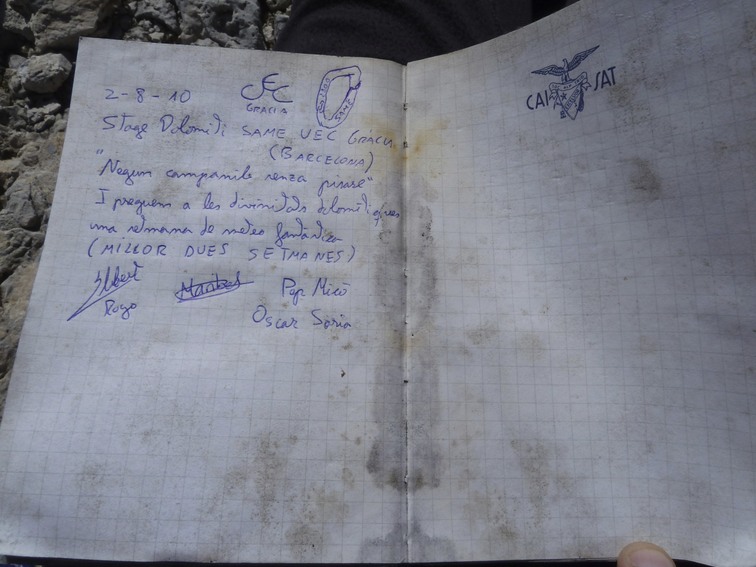 2-8-10
UEC
GRÀCIA
SAME
Stage Dolomiti SAME UEC GRÀCIA
(BARCELONA)
"Negun campanile senza pisase"
I preguem a les divinitats dolomitiques
una setmana de meteo fantàstica
(MILLOR DUES SETMANES)
Albert
Royo
Pep Micó
Oscar Soria
CAI SAT